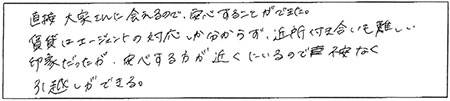 直接大家さんに会えるので、安心することができた。
賃貸はエージェントの対応しか分からず、近所付き合いも難しい
印象だったが、安心する方が近くにいるので不安なく
引越しができる。